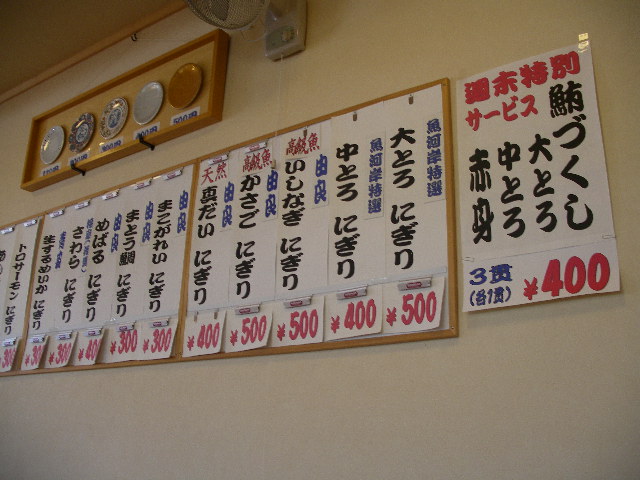 週末特別
サービス
鮪づくし
大とろ
中とろ
赤身
3貫
(各1貫)
¥400
魚河岸特選
大とろ にぎり
¥500
魚河岸特選
中とろ にぎり
¥400
高級魚
由良
いしなぎ にぎり
¥500
高級魚
由良
かさご にぎり
¥500
天然
由良
真だい にぎり
¥400
由良
まこがれい にぎり
¥300
由良
まとう鯛 にぎり
¥300
由良
めばる にぎり
さわら にぎり
生するめいか にぎり
トロサーモン にぎり
500円